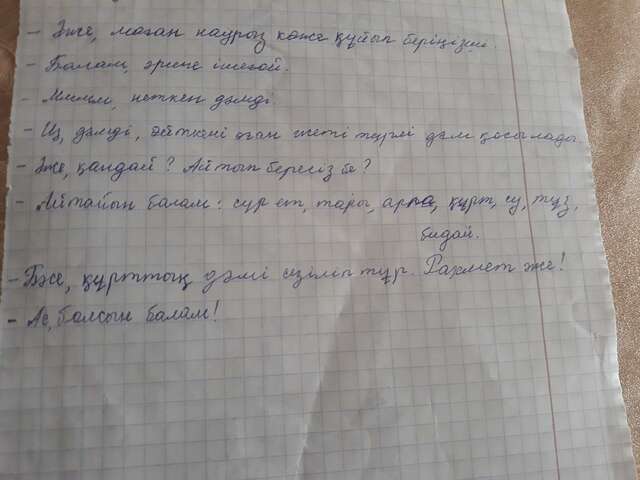 - Әже, маған наурыз көже құйып беріңізші.
- Балам, әрине ішегой.
- Мммм, неткен дәмді
- Иә, дәмді, өйткені оған жеті түрлі дәм қосылады.
- Әже, қандай? Айтып бересіз бе?
- Айтайын балам: сүр ет, тары, арпа, құрт, су, тұз,
бидай.
- Бәсе, құрттың дәмі сезіліп тұр. Рахмет әже!
- Ас болсын балам!